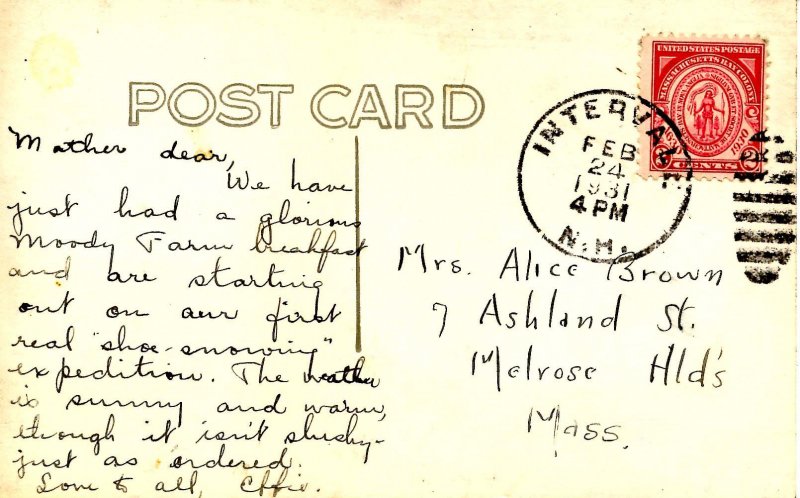 POST CARD
UNITED STATES POSTAGE
MASSACHUSETTS BAY COLONY
1930
2 CENTS 2
INTERVALE
FEB
24
1931
4 PM
N.H.
Mother dear,
We have
just had a glorious
Moody Farm breakfast
and are starting
out on our first
real "shoe-snowing"
expedition. The weather
is sunny and warm,
though it isn't slushy-
just as ordered.
Love to all, Effie.
Mrs. Alice Brown
7 Ashland St.
Melrose Hld's
Mass.